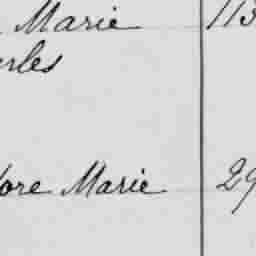 Marie 113
rles
ore Marie 29